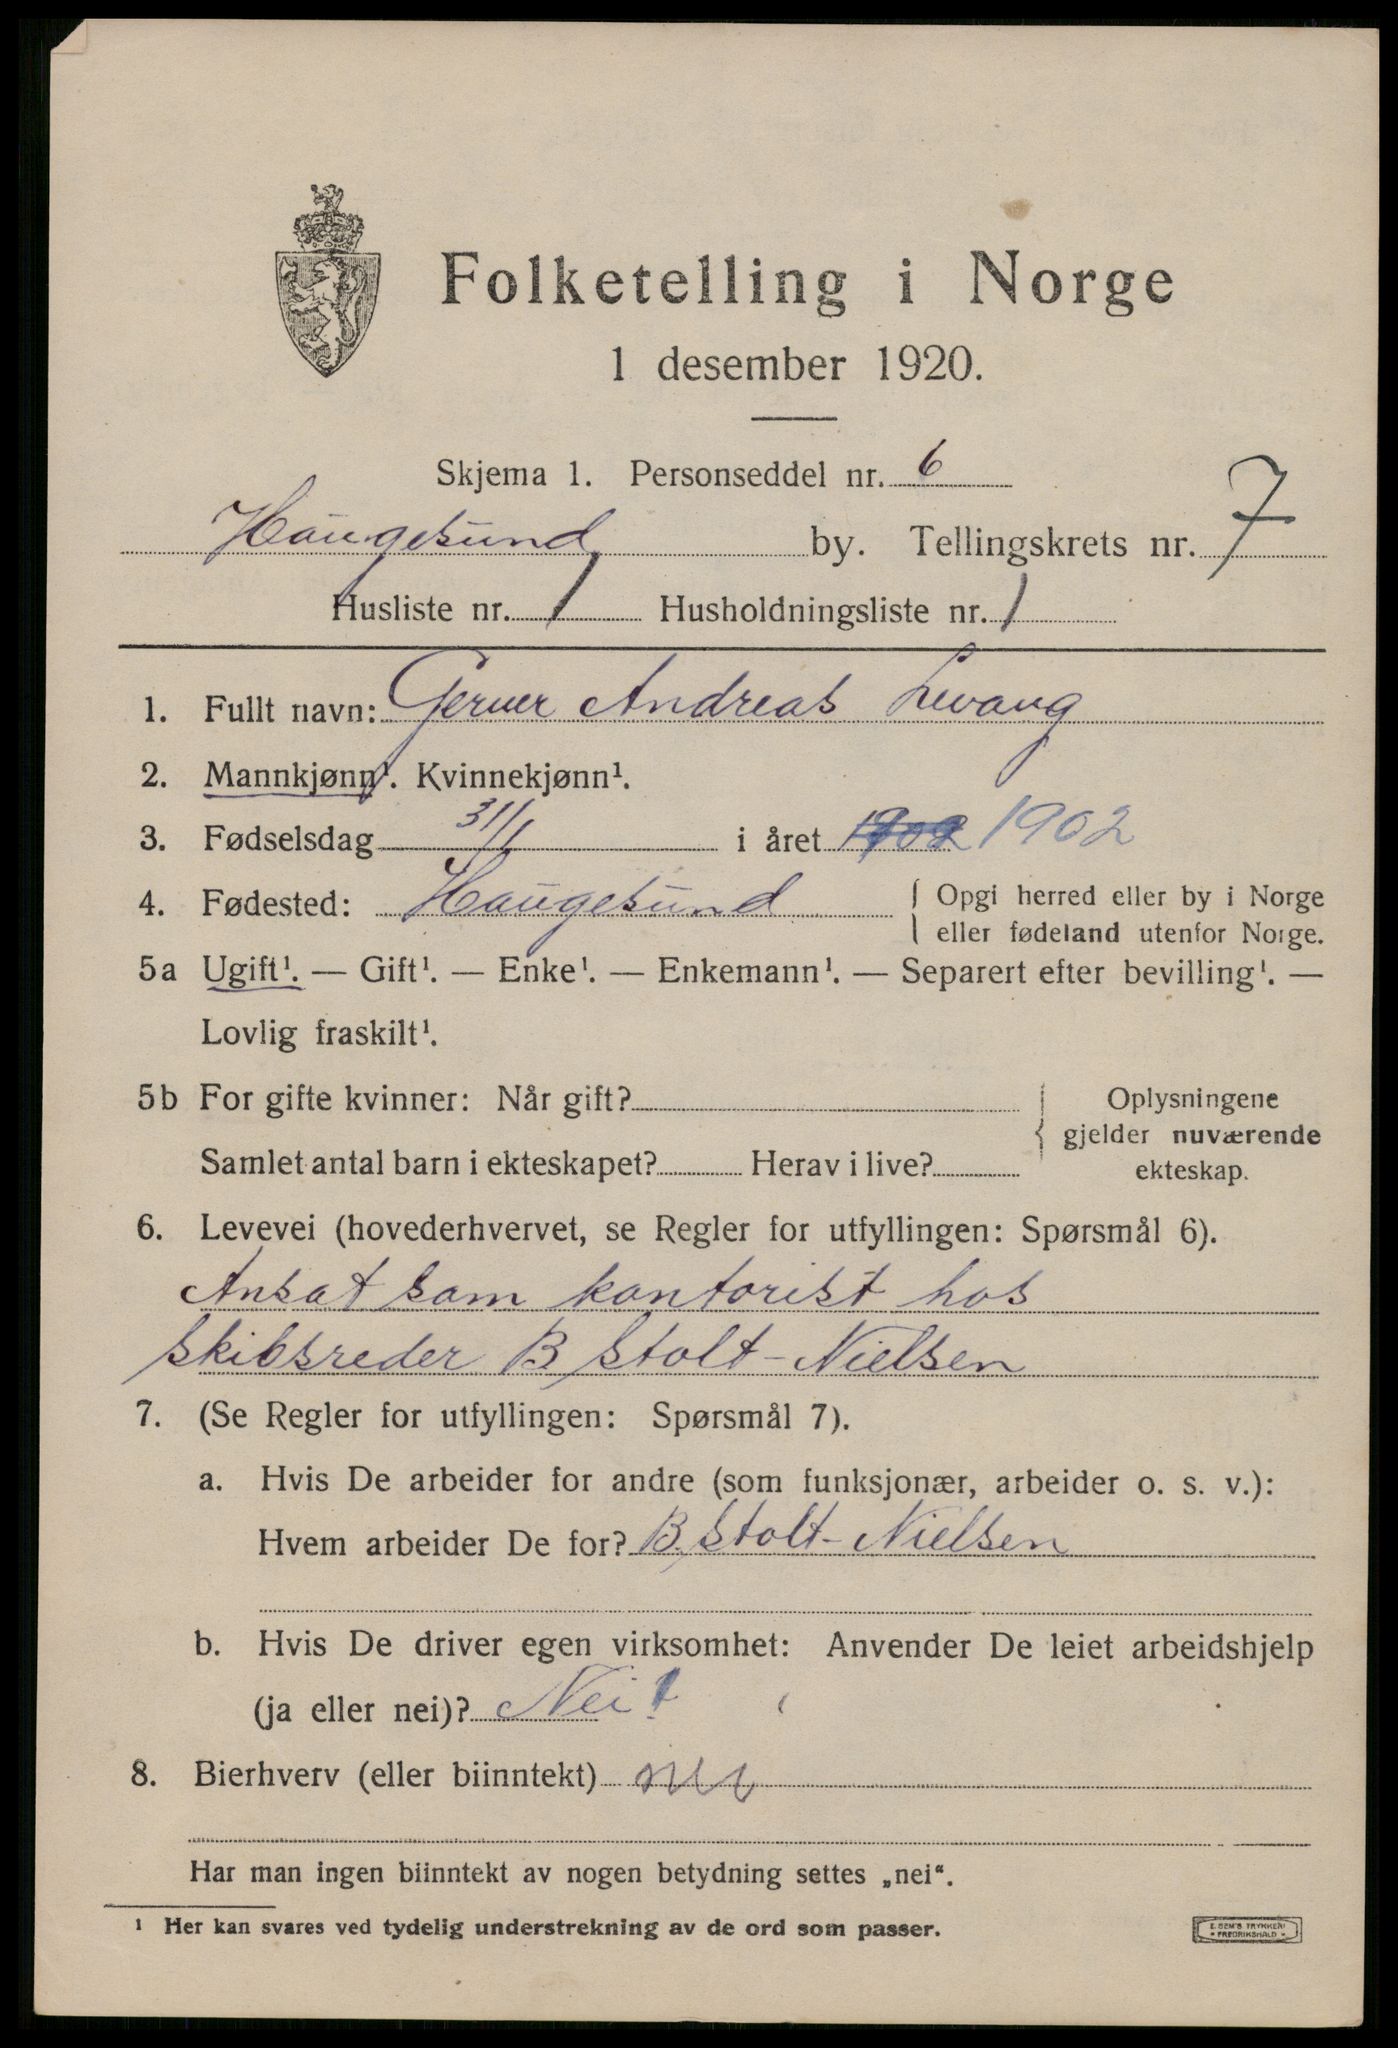 Folketelling i Norge
1 desember 1920.
Skjema 1. Personseddel nr. 6
Haugesund by. Tellingskrets nr. 7
Husliste nr. 1 Husholdningsliste nr. 1
1. Fullt navn: Gerner Andreas Levang
2. Mannkjønn¹. Kvinnekjønn¹.
3. Fødselsdag 31/1 i året 1902 1902
4. Fødested: Haugesund { Opgi herred eller by i Norge
eller fødeland utenfor Norge.
5a Ugift¹. — Gift¹. — Enke¹. — Enkemann¹. — Separert efter bevilling¹. —
Lovlig fraskilt¹.
5b For gifte kvinner: Når gift? { Oplysningene
gjelder nuværende
Samlet antal barn i ekteskapet? Herav i live? ekteskap.
6. Levevei (hovederhvervet, se Regler for utfyllingen: Spørsmål 6).
Ansat som kontorist hos
skibsreder B Stolt-Nielsen
7. (Se Regler for utfyllingen: Spørsmål 7).
a. Hvis De arbeider for andre (som funksjonær, arbeider o. s. v.):
Hvem arbeider De for? B. Stolt-Nielsen
b. Hvis De driver egen virksomhet: Anvender De leiet arbeidshjelp
(ja eller nei)? Nei!
8. Bierhverv (eller biinntekt) nei
Har man ingen biinntekt av nogen betydning settes „nei“.
¹ Her kan svares ved tydelig understrekning av de ord som passer.
E. SEM'S TRYKKERI
* FREDRIKSHALD *